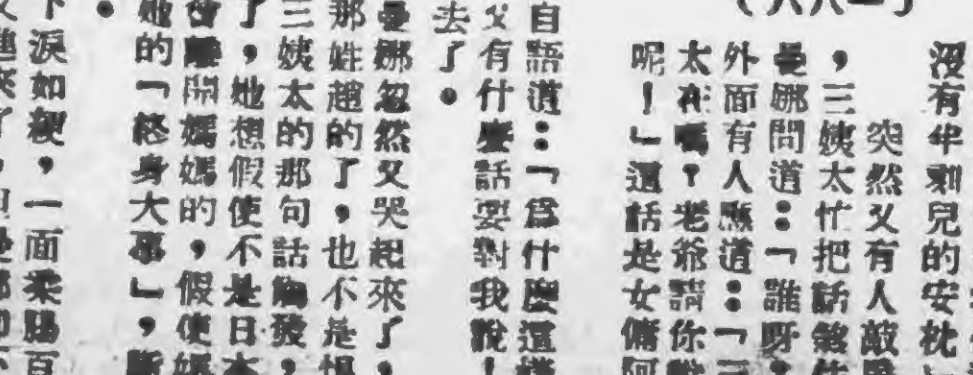 (八八一)
沒有半刻兒的安枕
突然又有人敲
，三姨太忙把話煞住
曼娜問道：「誰呀
外面有人應道：「三
太在嗎？老爺請你
呢！」這話是女傭阿
自語道：「爲什麼這樣
父有什麼話要對我說！
去了。
曼娜忽然又哭起來了，
那姓趙的了，也不是恨
三姨太的那句話觸發，
了，她想假使不是日本
會離開媽媽的，假使媽
她的「終身大事」，斷
。
下淚如綆，一面柔腸百